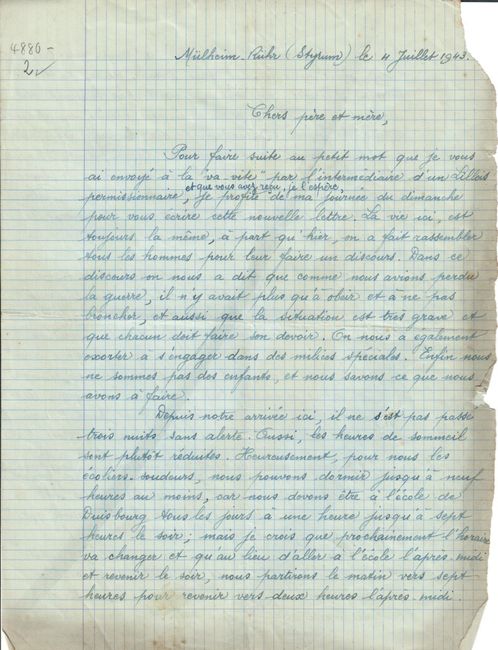 4880-
2✓
Mülheim-Ruhr (Styrum) le 4 Juillet 1943.
Chers père et mère,
Pour faire suite au petit mot que je vous
ai envoyé à la "va-vite" par l'intermédiaire d'un Lillois
et que vous avez reçu, je l'espère,
permissionnaire, je profite de ma journée du dimanche
pour vous écrire cette nouvelle lettre. La vie ici, est
toujours la même, à part qu'hier, on a fait rassembler
tous les hommes pour leur faire un discours. Dans ce
discours on nous a dit que comme nous avions perdu
la guerre, il n'y avait plus qu'à obéir et à ne pas
broncher, et aussi que la situation est très grave et
que chacun doit faire son devoir. On nous a également
exorter à s'engager dans des milices spéciales. Enfin nous
ne sommes pas des enfants, et nous savons ce que nous
avons à faire.
Depuis notre arrivée ici, il ne s'est pas passé
trois nuits sans alerte. Aussi, les heures de sommeil
sont plutôt réduites. Heureusement, pour nous les
écoliers-soudeurs, nous pouvons dormir jusqu'à neuf
heures au moins, car nous devons être à l'école de
Duisbourg tous les jours à une heure jusqu'à sept
heures le soir; mais je crois que prochainement l'horaire
va changer et qu'au lieu d'aller à l'école l'après-midi
et revenir le soir, nous partirons le matin vers sept
heures pour revenir vers deux heures l'après-midi.